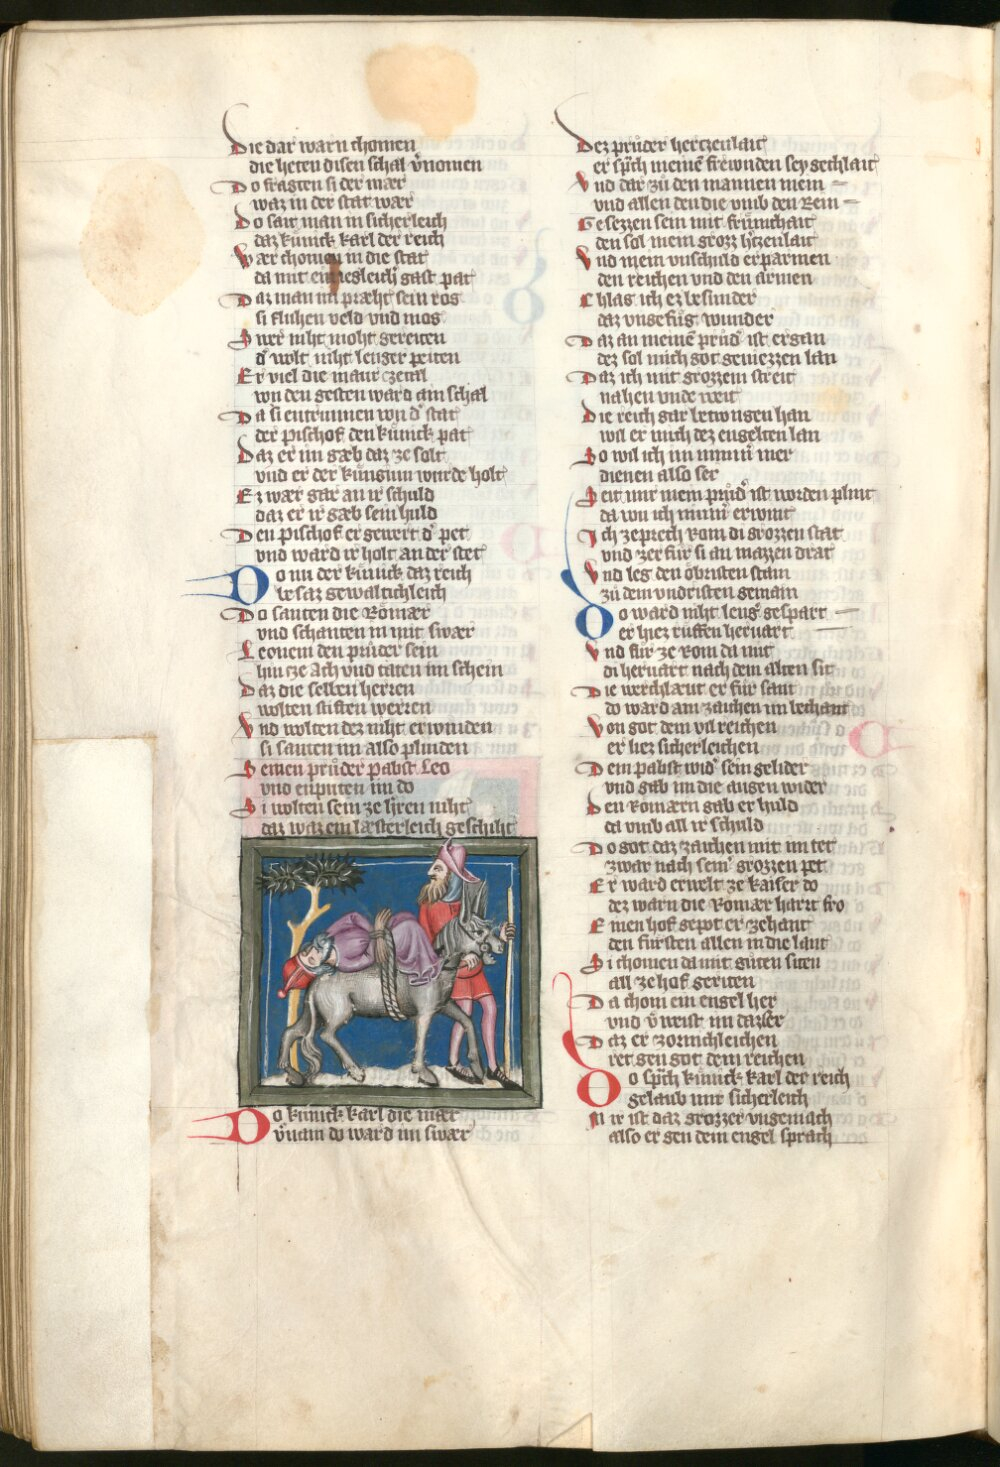 Die dar warn chomen
die heten disen schal v̄nomen
Do fragten si der mær
waz in der stat wær
Do sait man in sicherleich
daz kunick karl der reich
Wær chomen in die stat
da mit en iegleich gast pat
Daz man im præht sein ros
si fluhen veld vnd mos
Swer niht moht gereiten
d' wolt niht lenger peiten
Er viel die maur zetal
von den gesten ward ain schal
Da si entrunnen von d' stat
der pischof den kunick pat
Daz er im gæb daz ze solt
vnd er der kunginn wurde holt
Ez wær gar an ir schuld
daz er ir gæb sein huld
Den pischof er gewert d' pet
vnd ward ir holt an der stet
Do nu der kunick daz reich
besaz gewaltichleich
Do santen die Römær
vnd schanten in mit swær
Leonem den prüder sein
hin tze Ach vnd taten im schein
Daz die selben herren
wolten stiften werren
Vnd wolten dez niht erwinden
si santen im also plinden
Seinen prüder pabst Leo
vnd enputen im do
Si wolten sein ze h'ren niht
daz waz ein læsterleich geschiht
Do kunick karl die mær
v̄nam do ward im swær
Dez prüder hertzenlait
er sp̄ch meinē frewnden sey gechlait
Vnd dar zü den mannen mein
vnd allen den die vmb den Rein
Gesezzen sein mit frümchait
den sol mein grozz h'tzenlait
Vnd mein vnschuld erparmen
den reichen vnd den armen
Chlag ich ez besunder
daz vngefüg wunder
Daz an meinē prüd' ist ergan
dez sol mich got geniezzen lan
Daz ich mit grozzem streit
nahen vnde weit
Die reich gar betwngen han
wil er mich dez engelten lan
So wil ich im nimm' mer
dienen also ser
Seit mir mein prüd' ist worden plint
da von ich nimm' erwint
Ich zeprech Rom di grozzen stat
vnd zerfür si an mazzen drat
Vnd leg den öbristen stain
zü dem vndristen gemain
Do ward niht leng' gespart
er hiez rüffen hervart
Vnd für ze Rom da mit
di hervart nach dem alten sit
Die werchlæut er für sant
do ward ain zaichen im bechant
Von got dem vil reichen
er liez sicherleichen
Dem pabst wid' sein gelider
vnd gab im die augen wider
Den Romærn gab er huld
da vmb all ir schuld
Do got daz zaichen mit im tet
zwar nach sein' grozzen pet
Er ward erwelt ze kaiser do
dez warn die Romær hart fro
Einen hof gepot er zehant
den fürsten allen in die lant
Si chomen da mit güten siten
all ze hof geriten
Da chom ein engel her
vnd v̄weist im daz ser
Daz er zornichleichen
ret gen got dem reichen
Do sp̄ch kunick karl der reich
gelaub mir sicherleich
Mir ist daz grozzer vngemach
also er gen dem engel sprach